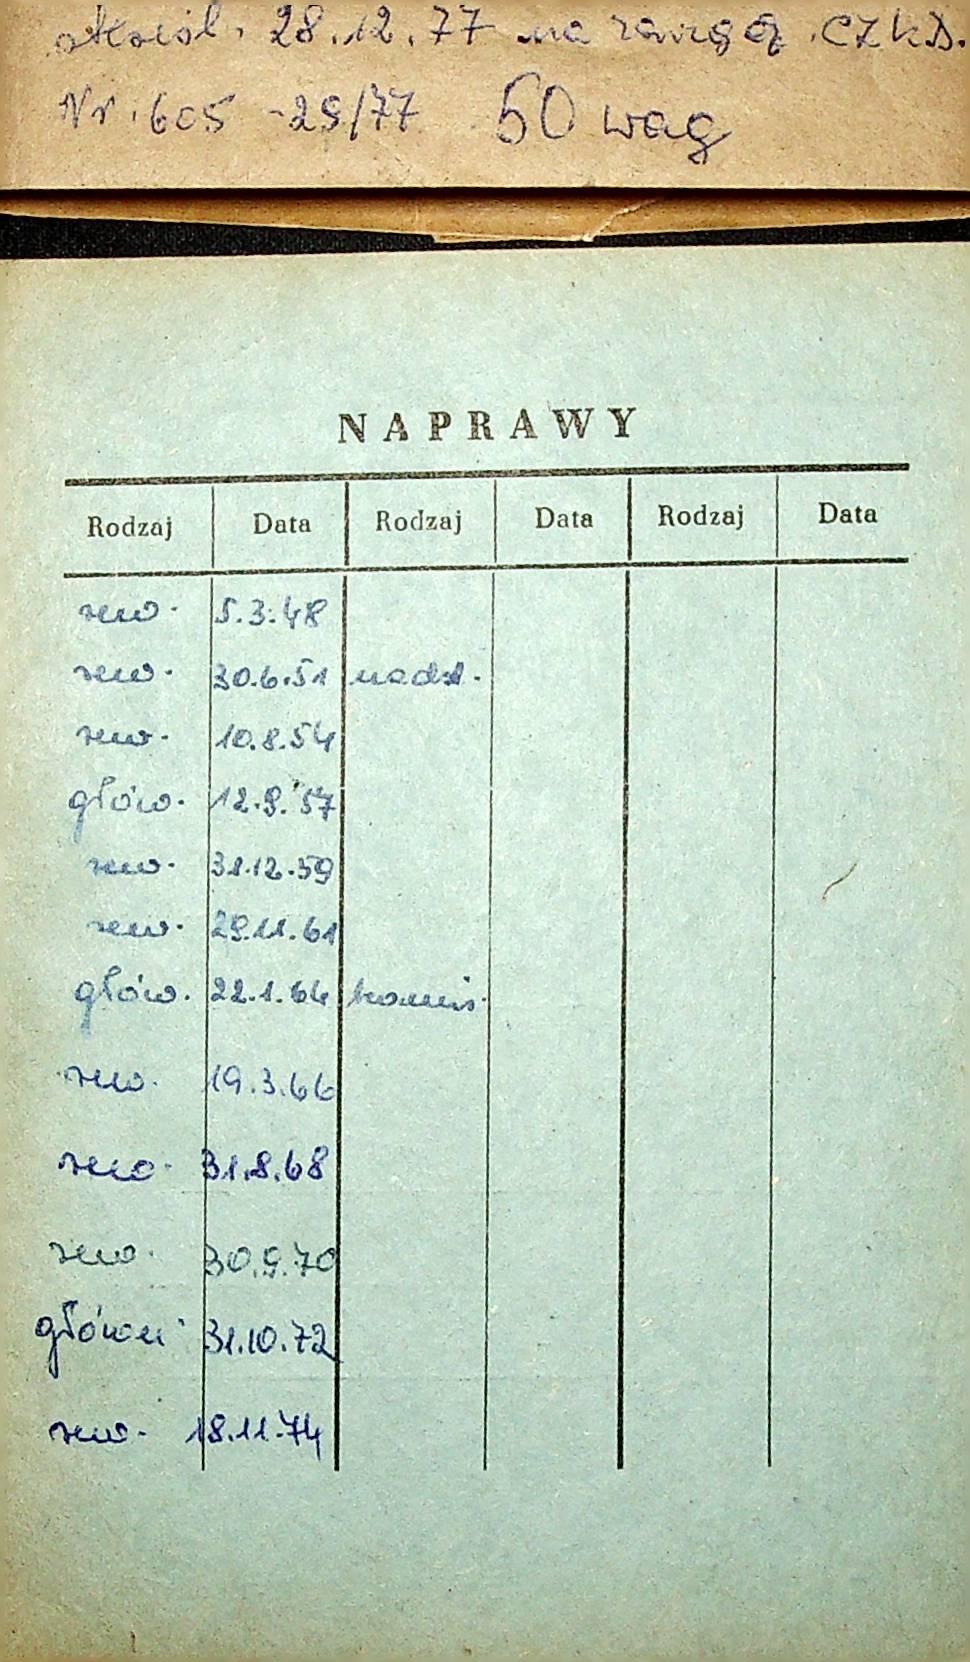 28.12.77 na CZKD.
Nr. 605 -29/77 50 wag
NAPRAWY
Rodzaj Data Rodzaj Data Rodzaj Data
rew. 5.3.48
rew. 30.6.51 nadzl.
rew. 10.8.54
głów. 12.9.57
rew. 31.12.59
rew. 29.11.61
głów. 22.1.64 komis.
rew. 19.3.66
rew. 31.8.68
rew. 30.9.70
główn. 31.10.72
rew. 18.11.74